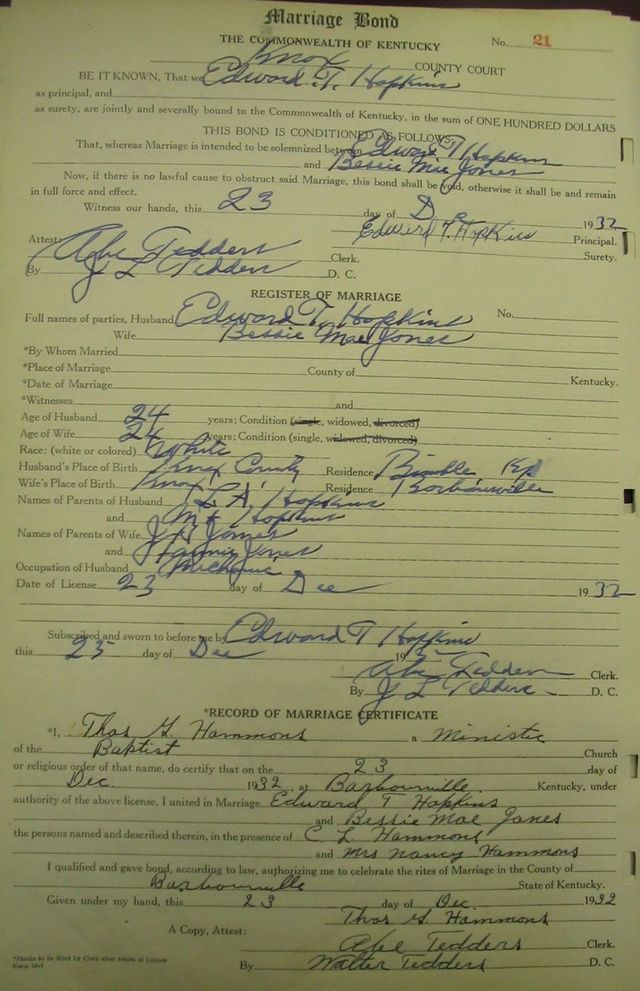 Marriage Bond
THE COMMONWEALTH OF KENTUCKY No. 21
Knox COUNTY COURT
BE IT KNOWN, That we Edward T. Hopkins
as principal, and
as surety, are jointly and severally bound to the Commonwealth of Kentucky, in the sum of ONE HUNDRED DOLLARS
THIS BOND IS CONDITIONED AS FOLLOWS:
That, whereas Marriage is intended to be solemnized between Edward T Hopkins
and Bessie Mae Jones
Now, if there is no lawful cause to obstruct said Marriage, this bond shall be void, otherwise it shall be and remain
in full force and effect.
Witness our hands, this 23 day of 1932
Edward T. Hopkins Principal.
Attest: Abe Tedders Clerk. Surety.
By J L Tedders D. C.
REGISTER OF MARRIAGE
Full names of parties, Husband Edward T. Hopkins No.
Wife Bessie Mae Jones
*By Whom Married
*Place of Marriage County of Kentucky.
*Date of Marriage
*Witnesses and
Age of Husband 24 years; Condition (single, widowed, divorced)
Age of Wife 24 years; Condition (single, widowed, divorced)
Race: (white or colored) White
Husband's Place of Birth Knox County Residence Bimble Ky
Wife's Place of Birth Knox Residence Barbourville
Names of Parents of Husband L A Hopkins
and Hopkins
Names of Parents of Wife Jones
and Fannie Jones
Occupation of Husband Mechanic
Date of License 23 day of Dec 1932
Subscribed and sworn to before me by Edward T Hopkins
this 23 day of Dec 19
Abe Tedders Clerk.
By J L Tedders D. C.
*RECORD OF MARRIAGE CERTIFICATE
*I, Thos G. Hammons a Ministe
of the Baptist Church
or religious order of that name, do certify that on the 23 day of
Dec. 1932 at Barbourville Kentucky, under
authority of the above license, I united in Marriage Edward T Hopkins
and Bessie Mae Jones
the persons named and described therein, in the presence of C L Hammons
and Mrs Nancy Hammons
I qualified and gave bond, according to law, authorizing me to celebrate the rites of Marriage in the County of
Barbourville State of Kentucky.
Given under my hand, this 23 day of Dec. 1932
Thos G Hammons
A Copy, Attest: Abe Tedders Clerk.
By Walter Tedders D. C.
*Blanks to be filled by Clerk after return of License